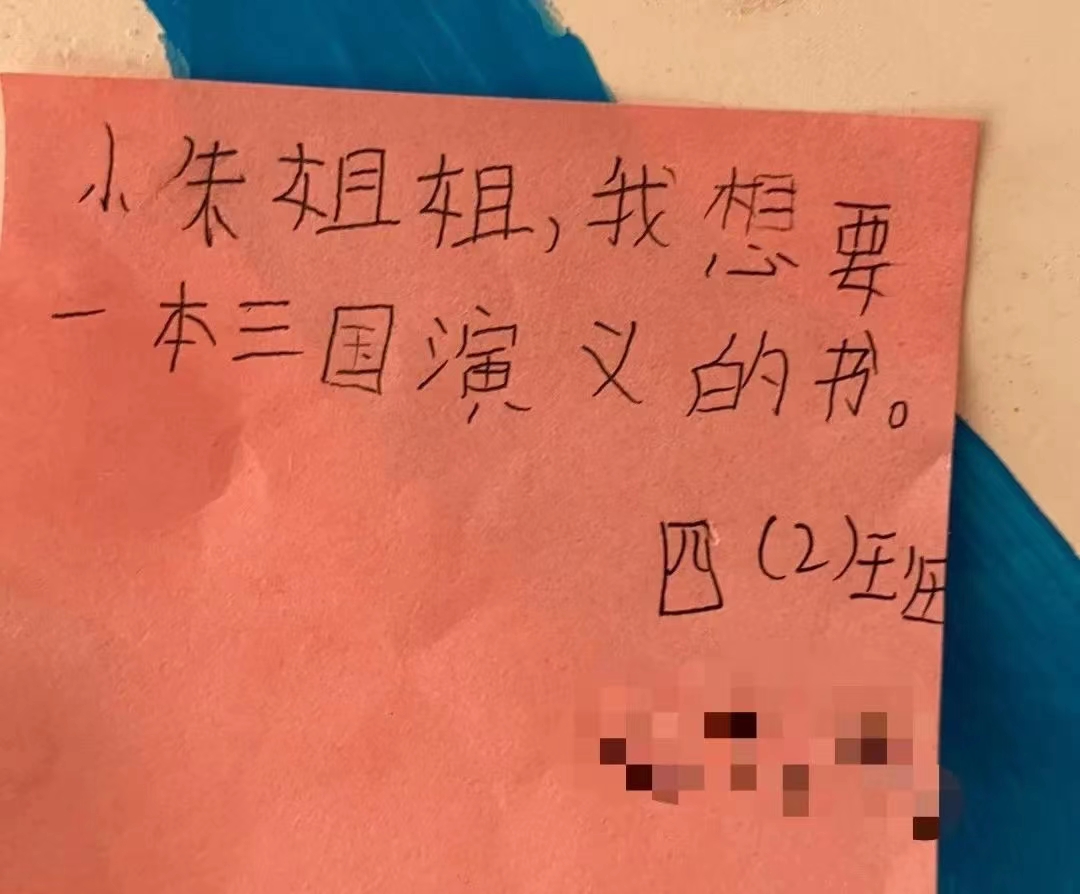 小朱姐姐,我想要
一本三国演义的书。
四(2)班